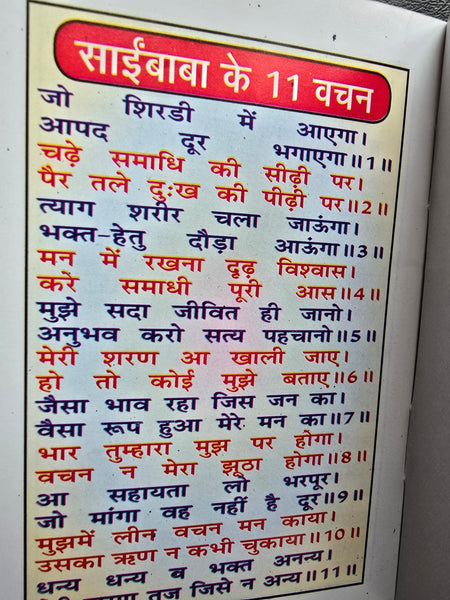 साईंबाबा के 11 वचन
जो शिरडी में आएगा।
आपद दूर भगाएगा॥1॥
चढ़े समाधि की सीढ़ी पर।
पैर तले दुःख की पीढ़ी पर॥2॥
त्याग शरीर चला जाऊंगा।
भक्त-हेतु दौड़ा आऊंगा॥3॥
मन में रखना दृढ़ विश्वास।
करे समाधी पूरी आस॥4॥
मुझे सदा जीवित ही जानो।
अनुभव करो सत्य पहचानो॥5॥
मेरी शरण आ खाली जाए।
हो तो कोई मुझे बताए॥6॥
जैसा भाव रहा जिस जन का।
वैसा रूप हुआ मेरे मन का॥7॥
भार तुम्हारा मुझ पर होगा।
वचन न मेरा झूठा होगा॥8॥
आ सहायता लो भरपूर।
जो मांगा वह नहीं है दूर॥9॥
मुझमें लीन वचन मन काया।
उसका ऋण न कभी चुकाया॥10॥
धन्य धन्य ब भक्त अनन्य।
तज जिसे न अन्य॥11॥